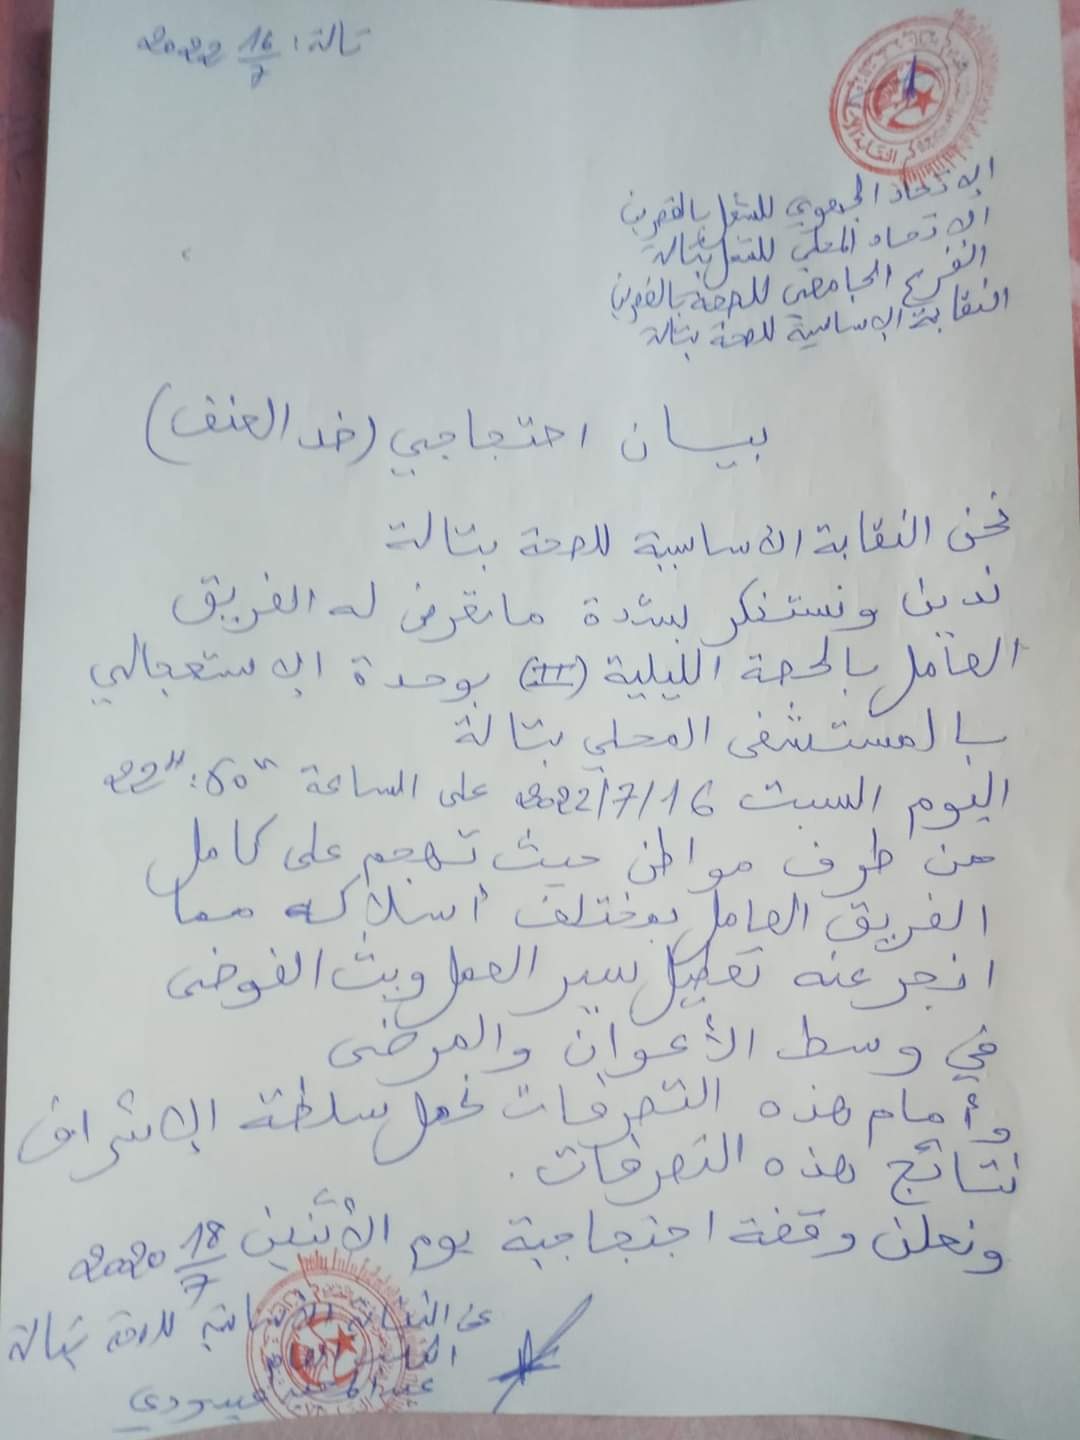 تالة: 16/7 2022
الاتحاد الجهوي للشغل بالقصرين
الاتحاد المحلي للشغل بتالة
الفرع الجامعي للصحة بالقصرين
النقابة الاساسية للصحة بتالة
بيان احتجاجي (ضد العنف)
نحن النقابة الاساسية للصحة بتالة
ندين ونستنكر بشدة ماتعرض له الفريق
العامل بالحصة الليلية (III) بوحدة الاستعجالي
بالمستشفى المحلي بتالة
اليوم السبت 2022/7/16 على الساعة 22":50"
من طرف مواطن حيث تهجم على كامل
الفريق العامل بمختلف أسلاكه مما
انجر عنه تعطيل سير العمل وبث الفوضى
في وسط الأعوان والمرضى
وأمام هذه التصرفات نحمل سلطة الاشراف
نتائج هذه التصرفات.
ونعلن وقفة احتجاجية يوم الأثنين 18/7 2020
عن النقابة الأساسية للصحة بتالة
الكاتب العام